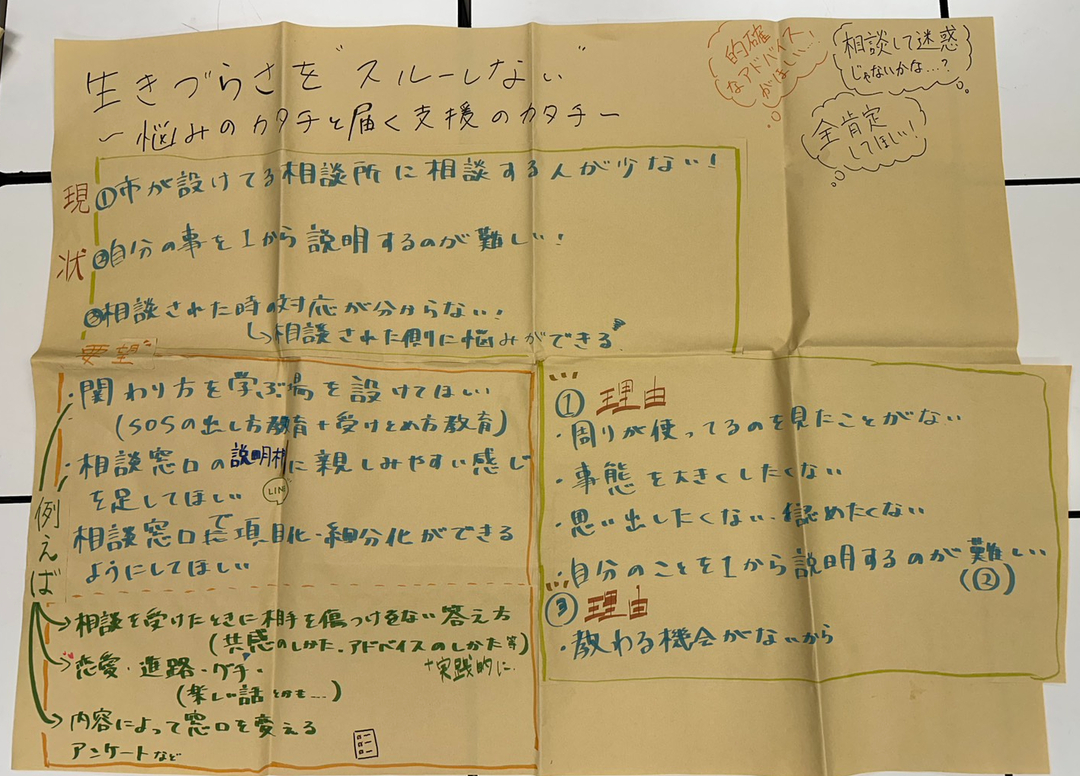 生きづらさを"スルーしない"
～悩みのカタチと届く支援のカタチ～
的確
なアドバイス
がほしい!
相談して迷惑
じゃないかな…?
全肯定
してほしい!
現状
①市が設けてる相談所に相談する人が少ない!
②自分の事を1から説明するのが難しい!
③相談された時の対応が分からない!
↳相談された側に悩みができる
要望
・関わり方を学ぶ場を設けてほしい
(SOSの出し方教育+受けとめ方教育)
・相談窓口の説明材に親しみやすい感じ
を足してほしい
LINE
相談窓口で項目化・細分化ができる
ようにしてほしい
例えば
→相談を受けたときに相手を傷つけない答え方
(共感のしかた、アドバイスのしかた等)
+実践的に
→恋愛・進路・グチ・
(楽しい話とかも…)
→内容によって窓口を変える
アンケートなど
①理由
・周りが使ってるのを見たことがない
・事態を大きくしたくない
・思い出したくない、認めたくない
・自分のことを1から説明するのが難しい
(②)
③理由
・教わる機会がないから